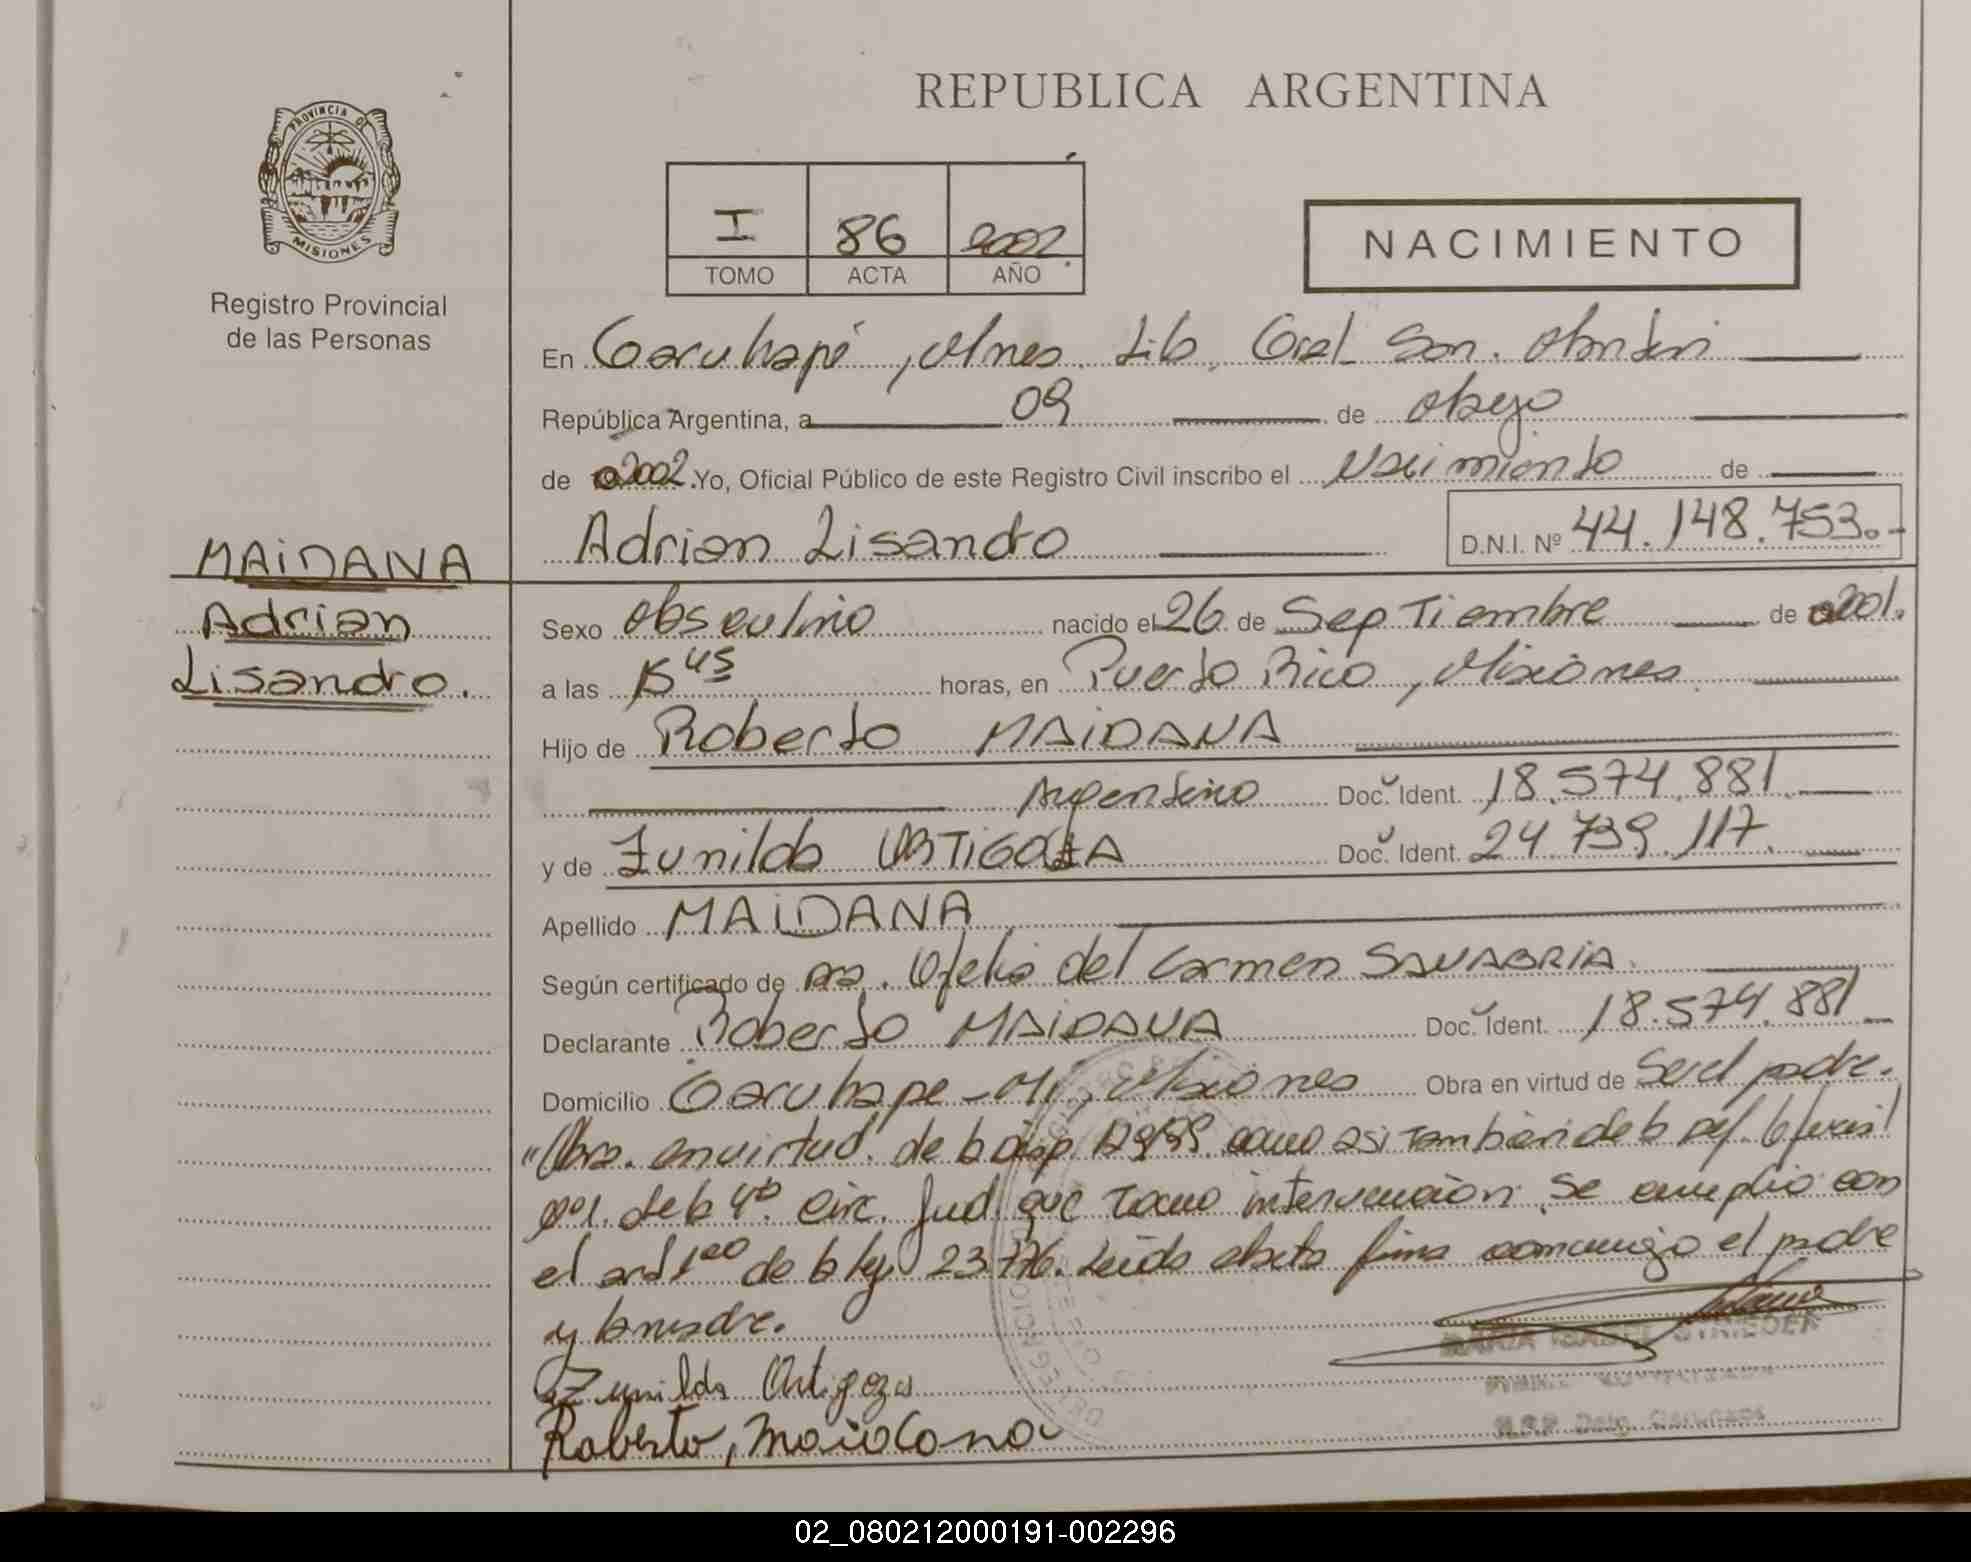 REPUBLICA ARGENTINA
PROVINCIA DE
MISIONES
Registro Provincial
de las Personas
I 86 2002
TOMO ACTA AÑO
NACIMIENTO
En Garuhapé, Mnes. Lib. Gral San. Martin
República Argentina, a 09 de Mayo
de 2002. Yo, Oficial Público de este Registro Civil inscribo el Nacimiento de
Adrian Lisandro D.N.I. Nº 44.148.753.-
MAIDANA
Adrian
Lisandro.
Sexo Masculino nacido el 26 de Septiembre de 2001.
a las 15 45 horas, en Puerto Rico, Misiones.
Hijo de Roberto MAIDANA
Argentino Doc. Ident. 18.574.881.
y de Zunilda ORTIGOZA Doc. Ident. 24.739.117.
Apellido MAIDANA
Según certificado de Ofelia del Carmen SANABRIA.
Declarante Roberto MAIDANA Doc. Ident. 18.574.881
Domicilio Garuhape-Mi, Misiones Obra en virtud de Ser el padre.
"Obra. en virtud. de la disp. como asi Tambien de la
de la 4ta. Circ. Jud. que Tomo intervención. Se cumplio con
el art 1ero de la ley 23.776. Leida el acta firma conmigo el padre
y la madre.
Zunilda Ortigoza
Roberto, Maidana
MARIA ISABEL STRIEDER
R.P.P. Deleg. Garuhape
02_080212000191-002296